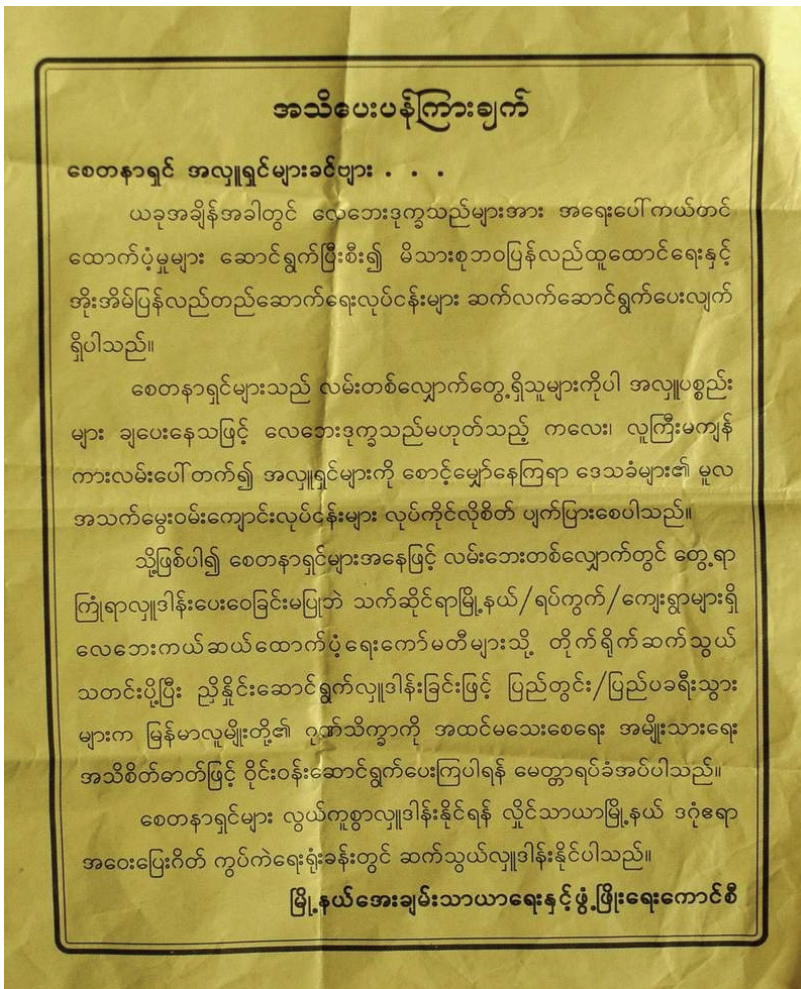 အသိပေးပန်ကြားချက်
စေတနာရှင် အလှူရှင်များခင်ဗျား . . .
ယခုအချိန်အခါတွင် လေဘေးဒုက္ခသည်များအား အရေးပေါ်ကယ်တင်
ထောက်ပံ့မှုများ ဆောင်ရွက်ပြီးစီး၍ မိသားစုဘဝပြန်လည်ထူထောင်ရေးနှင့်
အိုးအိမ်ပြန်လည်တည်ဆောက်ရေးလုပ်ငန်းများ ဆက်လက်ဆောင်ရွက်ပေးလျက်
ရှိပါသည်။
စေတနာရှင်များသည် လမ်းတစ်လျှောက်တွေ့ရှိသူများကိုပါ အလှူပစ္စည်း
များ ချပေးနေသဖြင့် လေဘေးဒုက္ခသည်မဟုတ်သည့် ကလေး၊ လူကြီးမကျန်
ကားလမ်းပေါ်တက်၍ အလှူရှင်များကို စောင့်မျှော်နေကြရာ ဒေသခံများ၏ မူလ
အသက်မွေးဝမ်းကျောင်းလုပ်ငန်းများ လုပ်ကိုင်လိုစိတ် ပျက်ပြားစေပါသည်။
သို့ဖြစ်ပါ၍ စေတနာရှင်များအနေဖြင့် လမ်းဘေးတစ်လျှောက်တွင် တွေ့ရာ
ကြုံရာလှူဒါန်းပေးဝေခြင်းမပြုဘဲ သက်ဆိုင်ရာမြို့နယ်/ရပ်ကွက်/ကျေးရွာများရှိ
လေဘေးကယ်ဆယ်ထောက်ပံ့ရေးကော်မတီများသို့ တိုက်ရိုက်ဆက်သွယ်
သတင်းပို့ပြီး ညှိနှိုင်းဆောင်ရွက်လှူဒါန်းခြင်းဖြင့် ပြည်တွင်း/ပြည်ပခရီးသွား
များက မြန်မာလူမျိုးတို့၏ ဂုဏ်သိက္ခာကို အထင်မသေးစေရေး အမျိုးသားရေး
အသိစိတ်ဓာတ်ဖြင့် ဝိုင်းဝန်းဆောင်ရွက်ပေးကြပါရန် မေတ္တာရပ်ခံအပ်ပါသည်။
စေတနာရှင်များ လွယ်ကူစွာလှူဒါန်းနိုင်ရန် လှိုင်သာယာမြို့နယ် ဒဂုံဧရာ
အဝေးပြေးဂိတ် ကွပ်ကဲရေးရုံးခန်းတွင် ဆက်သွယ်လှူဒါန်းနိုင်ပါသည်။
မြို့နယ်အေးချမ်းသာယာရေးနှင့်ဖွံ့ဖြိုးရေးကောင်စီ